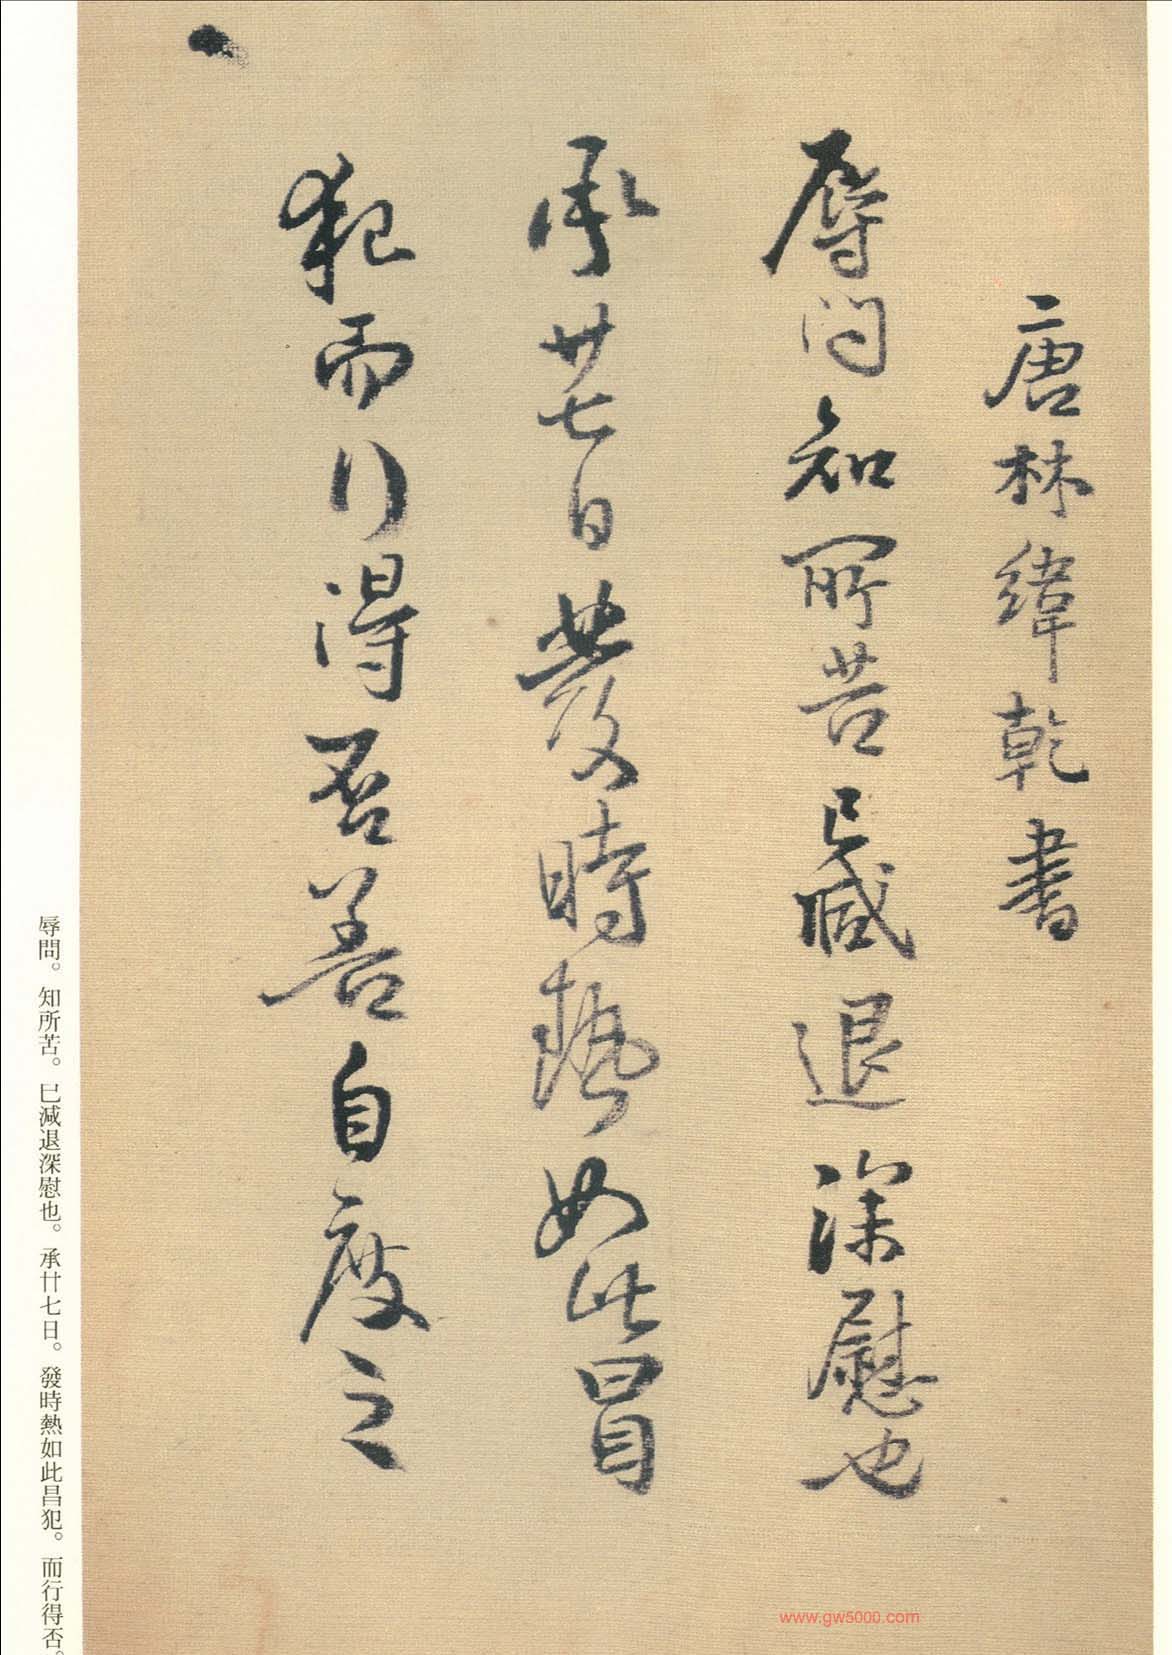 唐林緯乾書
辱問知所苦已減退深慰也
承廿七日發時熱如此冒
犯而行得否善自度之
辱問。知所苦。巳減退深慰也。承廿七日。發時熱如此昌犯。而行得否。
www.gw5000.com